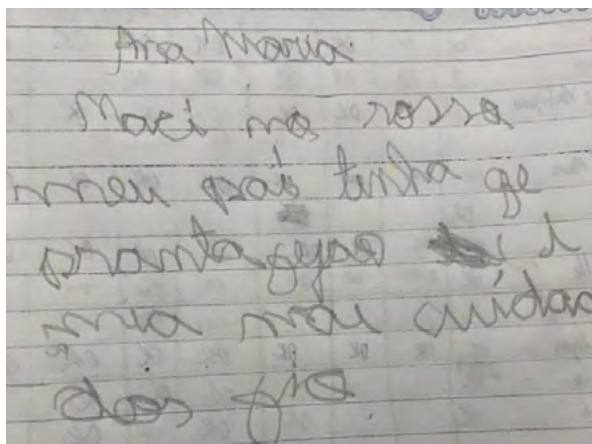 Ana Maria
Naci na rossa
meu pais tinha qe
pranta fejao i
mia mai cuidar
dos fio